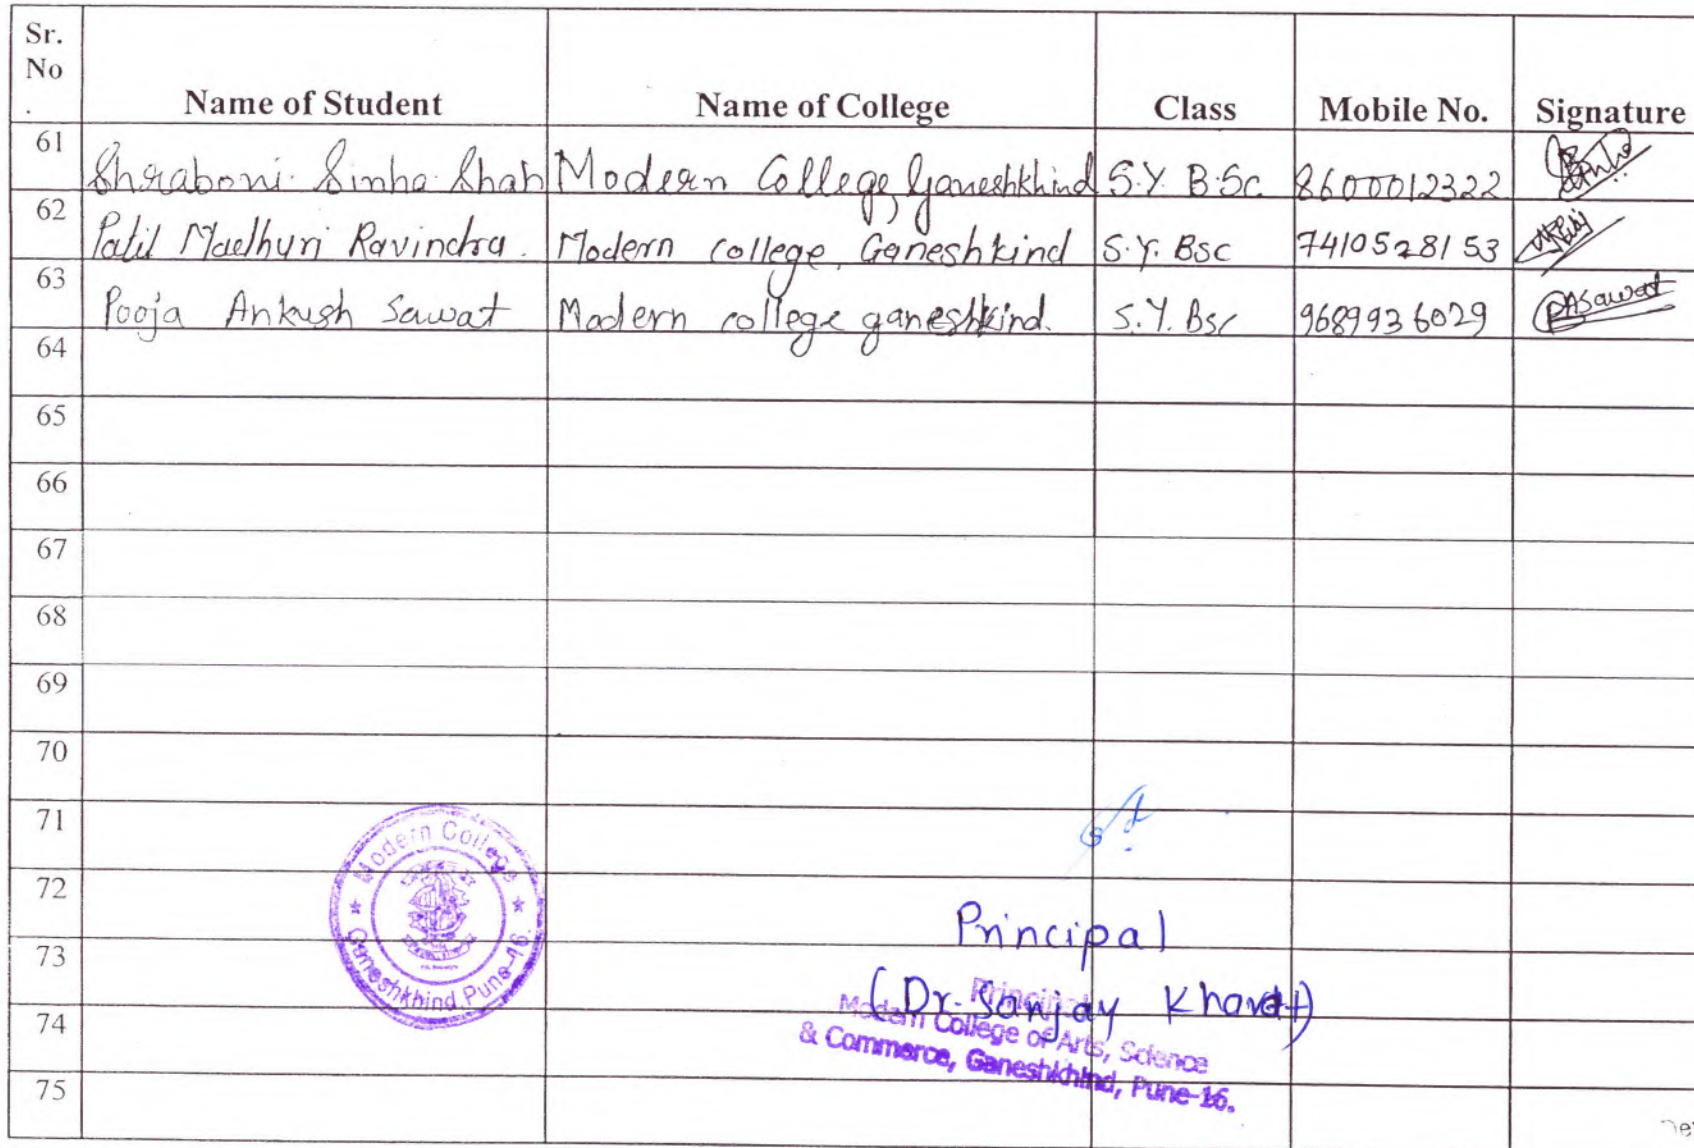 Sr. No . Name of Student Name of College Class Mobile No. Signature
61 Shraboni Sinha Shah Modern College, Ganeshkhind S.Y. B.Sc. 8600012322
62 Patil Madhuri Ravindra. Modern college, Ganeshkind S.Y. BSc 7410528153
63 Pooja Ankush Sawat Modern college ganeshkind. S.Y. Bsc 9689936029 PASawat
64
65
66
67
68
69
70
71
72
73
74
75
Modern College
Ganeshkhind Pune-16.
Principal
(Dr. Sanjay Kharat)
Principal
Modern College of Arts, Science
& Commerce, Ganeshkhind, Pune-16.